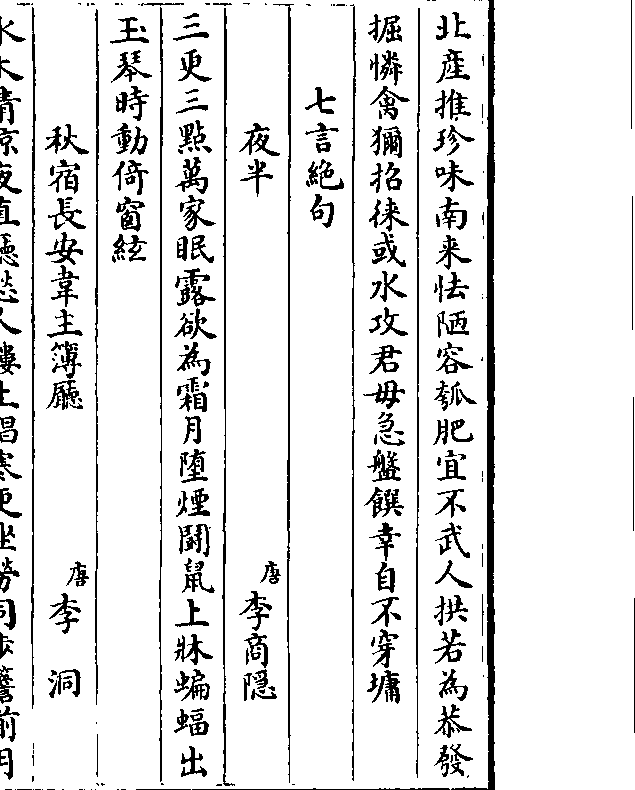 北產推珍味南来怯陋容瓠肥宜不武人拱若為恭發
掘憐禽獮招徠或水攻君毋急盤饌幸自不穿墉
七言絶句
夜半 唐 李商隠
三更三點萬家眠露欲為霜月墮煙鬪鼠上牀蝙蝠出
玉琴時動倚窗絃
秋宿長安韋主簿廳 唐 李洞
水木清凉夜直廳愁人樓上唱寒更坐勞同步簷前月